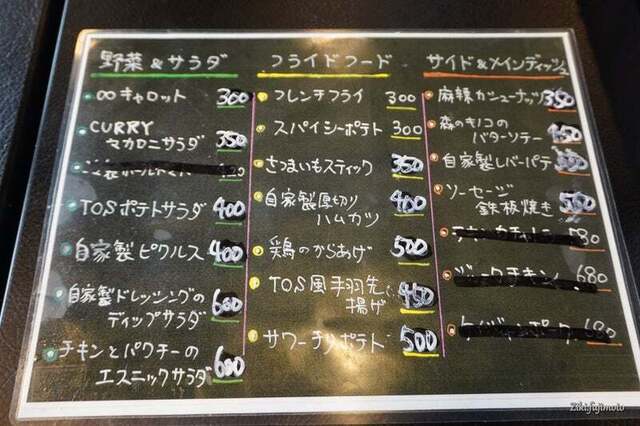 野菜 & サラダ
∞キャロット 300
CURRY
マカロニサラダ 350
TOSポテトサラダ 400
自家製ピクルス 400
自家製ドレッシングの
ディップサラダ 600
チキンとパクチーの
エスニックサラダ 600
フライドフード
フレンチフライ 300
スパイシーポテト 300
さつまいもスティック 350
自家製厚切り
ハムカツ 400
鶏のからあげ 500
TOS風手羽先
揚げ 450
サワーチリポテト 500
サイド&メインディッシュ
麻辣カシューナッツ 350
森のキノコの
バターソテー
自家製レバーパテ
ソーセージ
鉄板焼き 550
580
ジャークチキン 680
680
Zikifujimoto